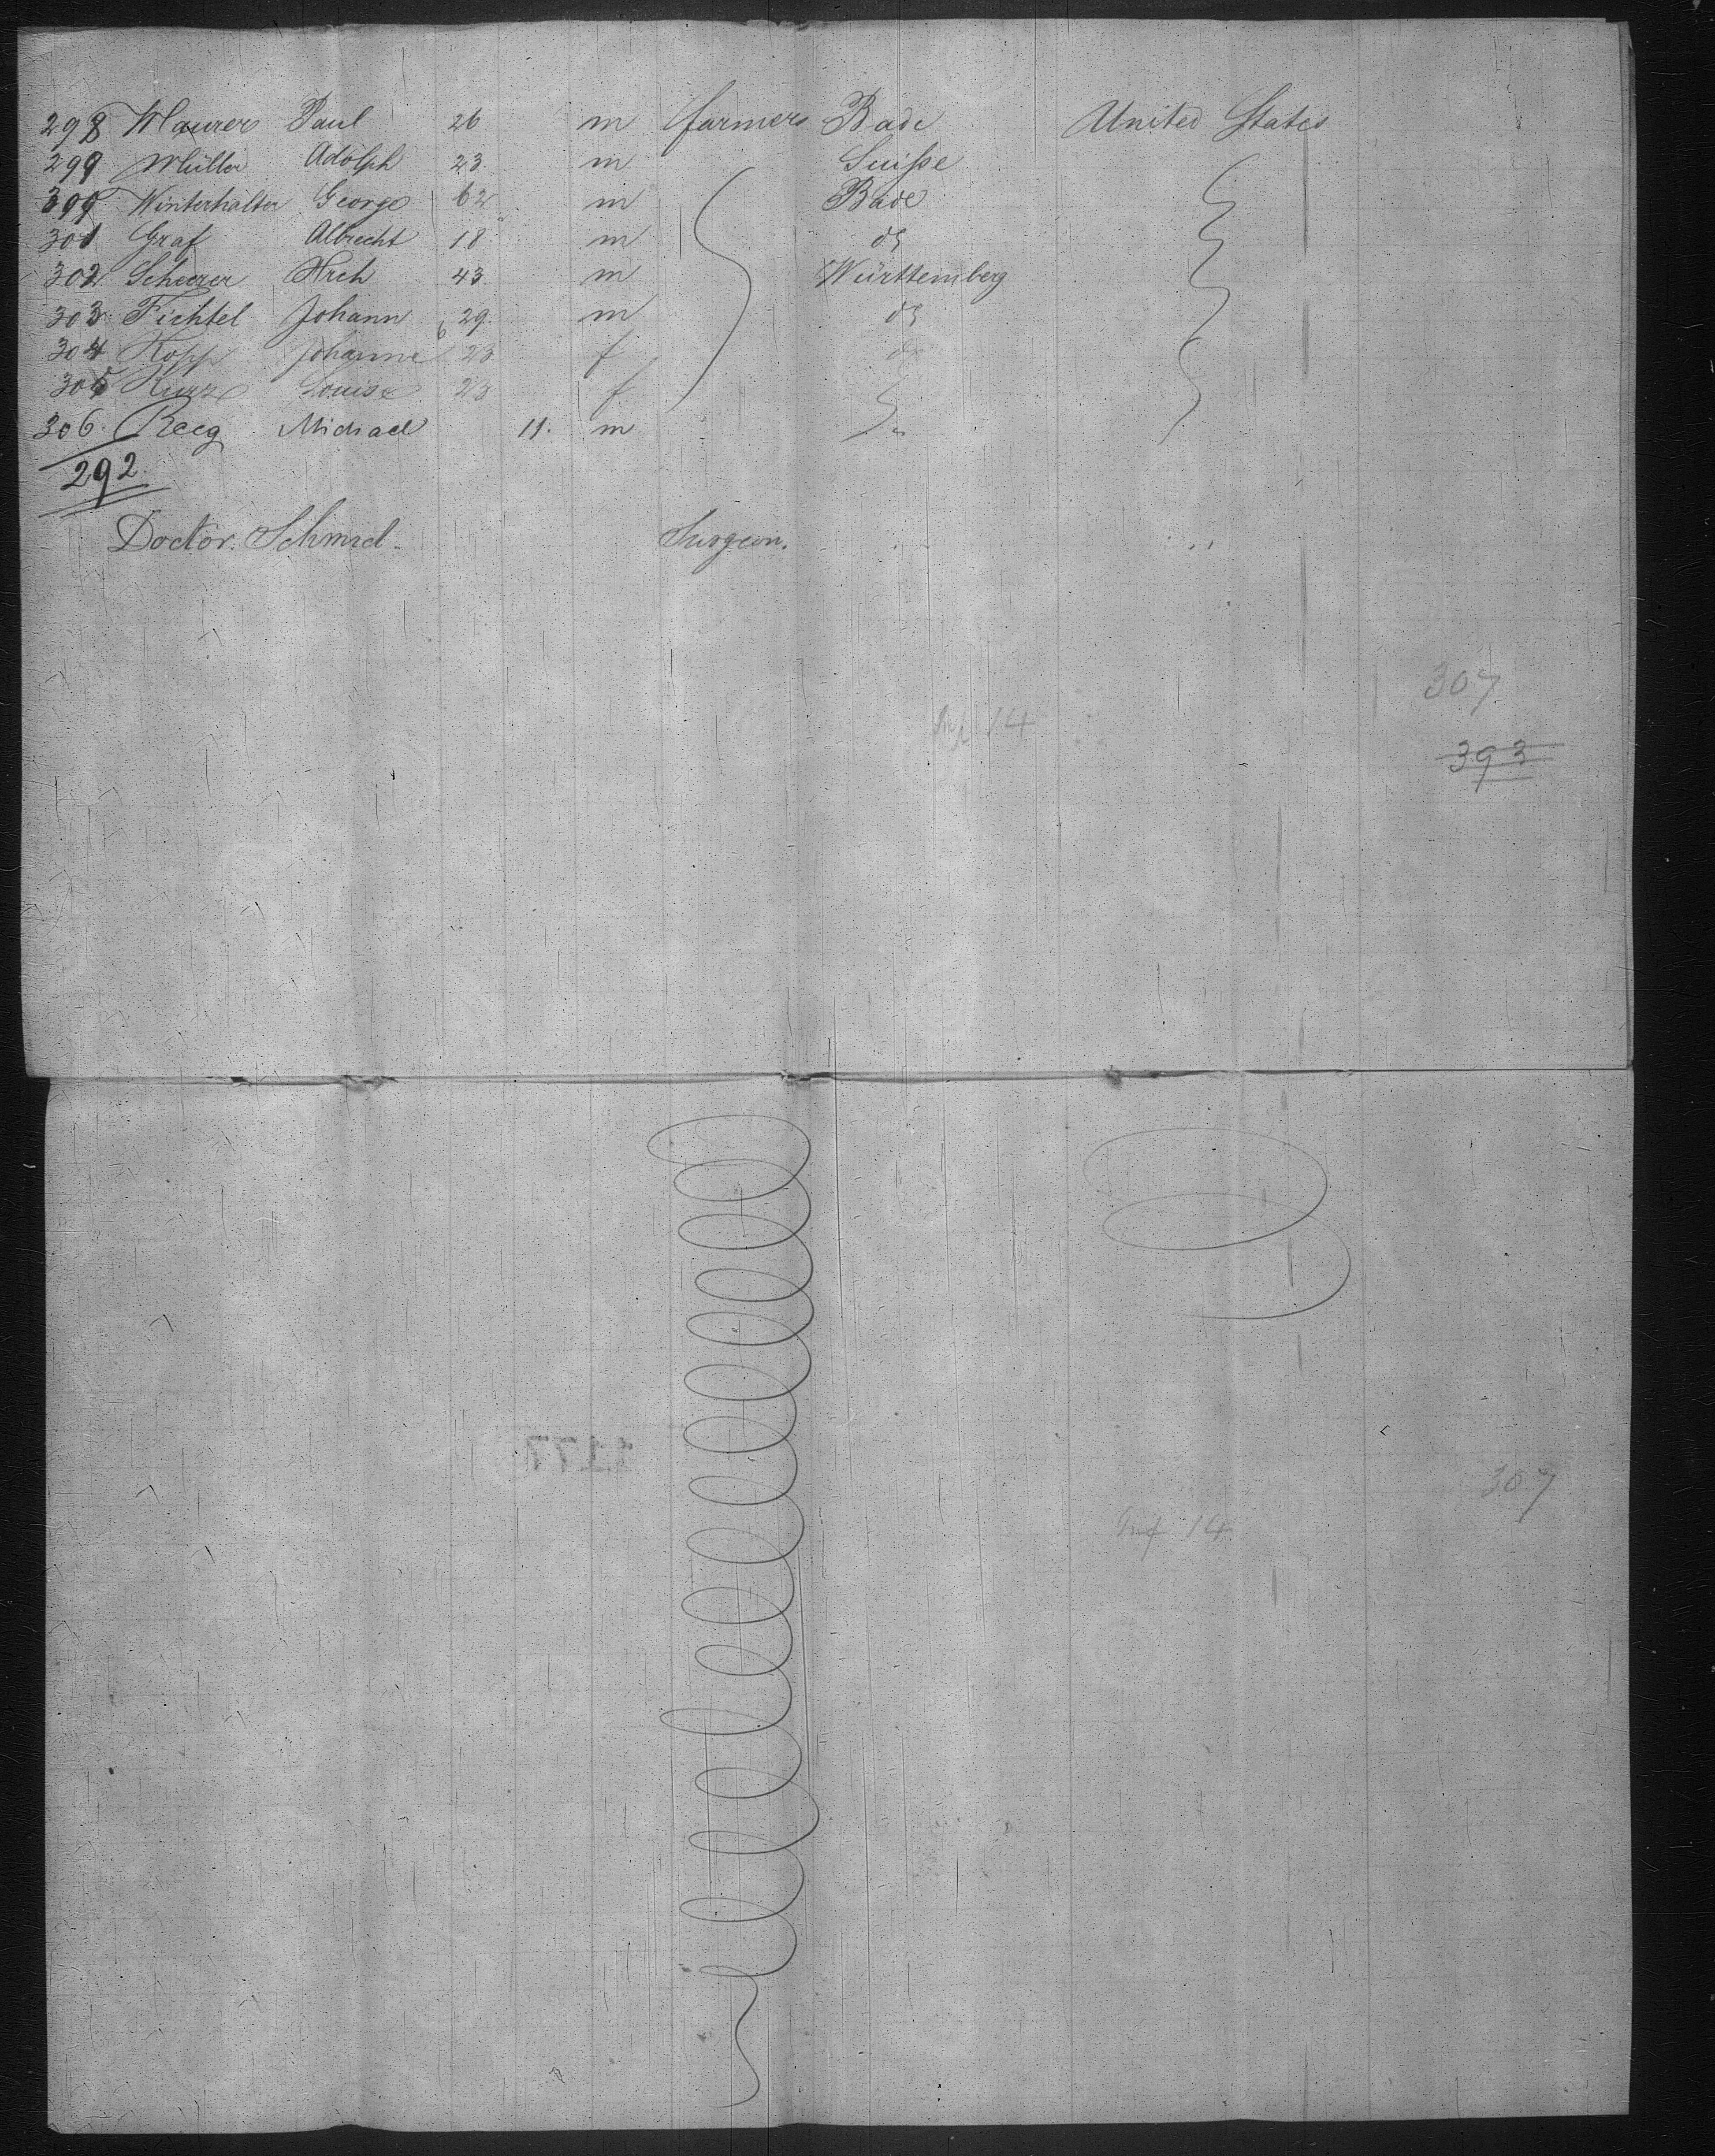 298 Maurer Paul 26 m farmers Bade United States
299 Müller Adolph 23 m Suisse
300 Winterhalter George 62 m Bade
301 Graf Albrecht 18 m do
302 Scheerer Hrch 43 m Württemberg
303 Fichtel Johann 29 m do
304 Kopp Johanne 23 f do
305 Kurz Louise 23 f
306 Reeg Michael 11. m "
292
Doctor. Schmid. Surgeon.
307
14
393
1177
307
Inf 14